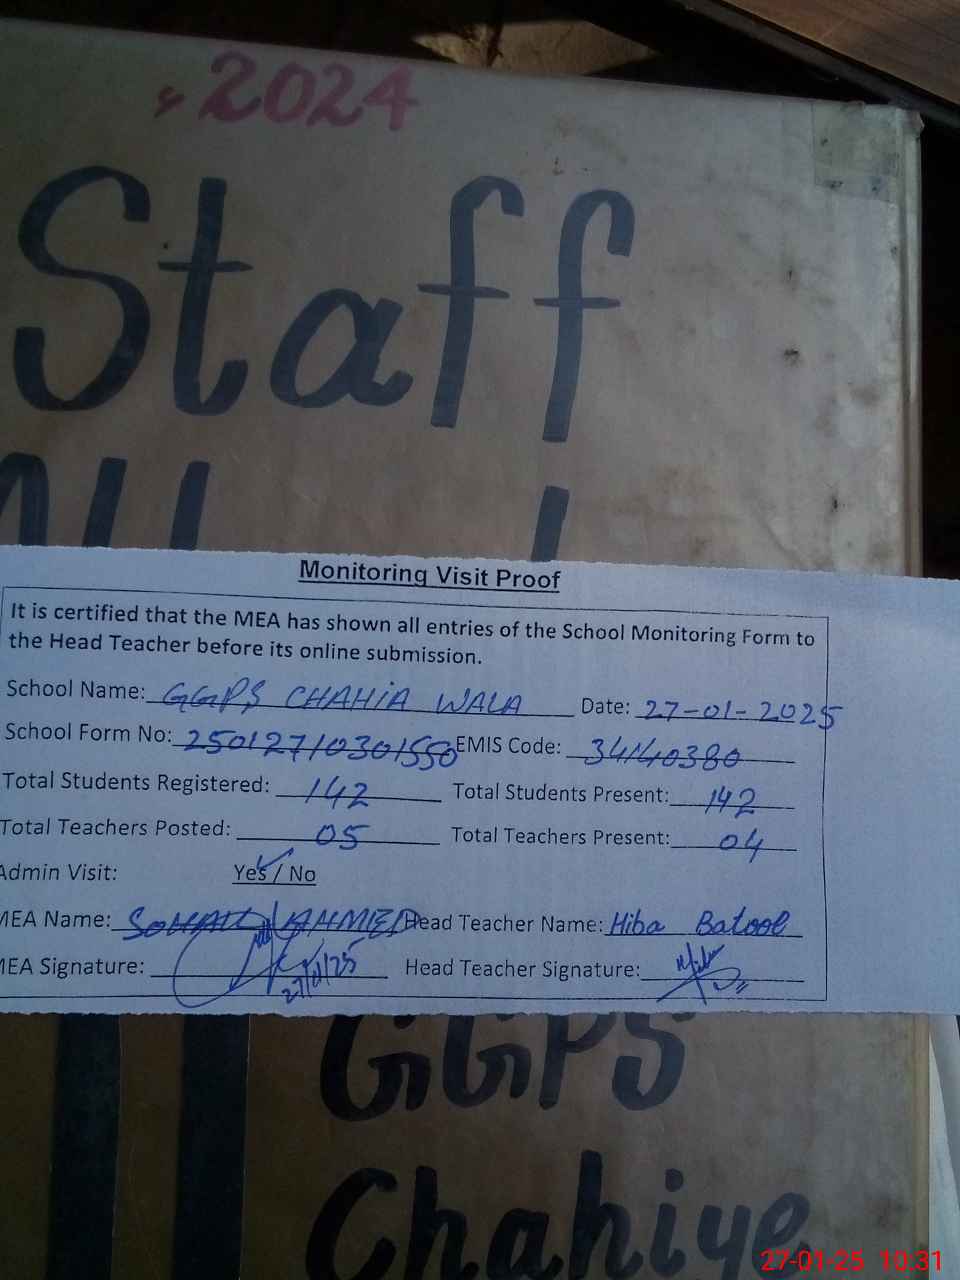 2024
Staff
Monitoring Visit Proof
It is certified that the MEA has shown all entries of the School Monitoring Form to
the Head Teacher before its online submission.
School Name: GGPS CHAHIA WALA Date: 27-01-2025
School Form No: 25012710301550 EMIS Code: 34140380
Total Students Registered: 142 Total Students Present: 142
Total Teachers Posted: 05 Total Teachers Present: 04
Admin Visit: Yes / No
MEA Name: SOHAIL AHMED Head Teacher Name: Hiba Batool
MEA Signature: 27/01/25 Head Teacher Signature: Hiba
GGPS
Chahiye
27-01-25 10:31